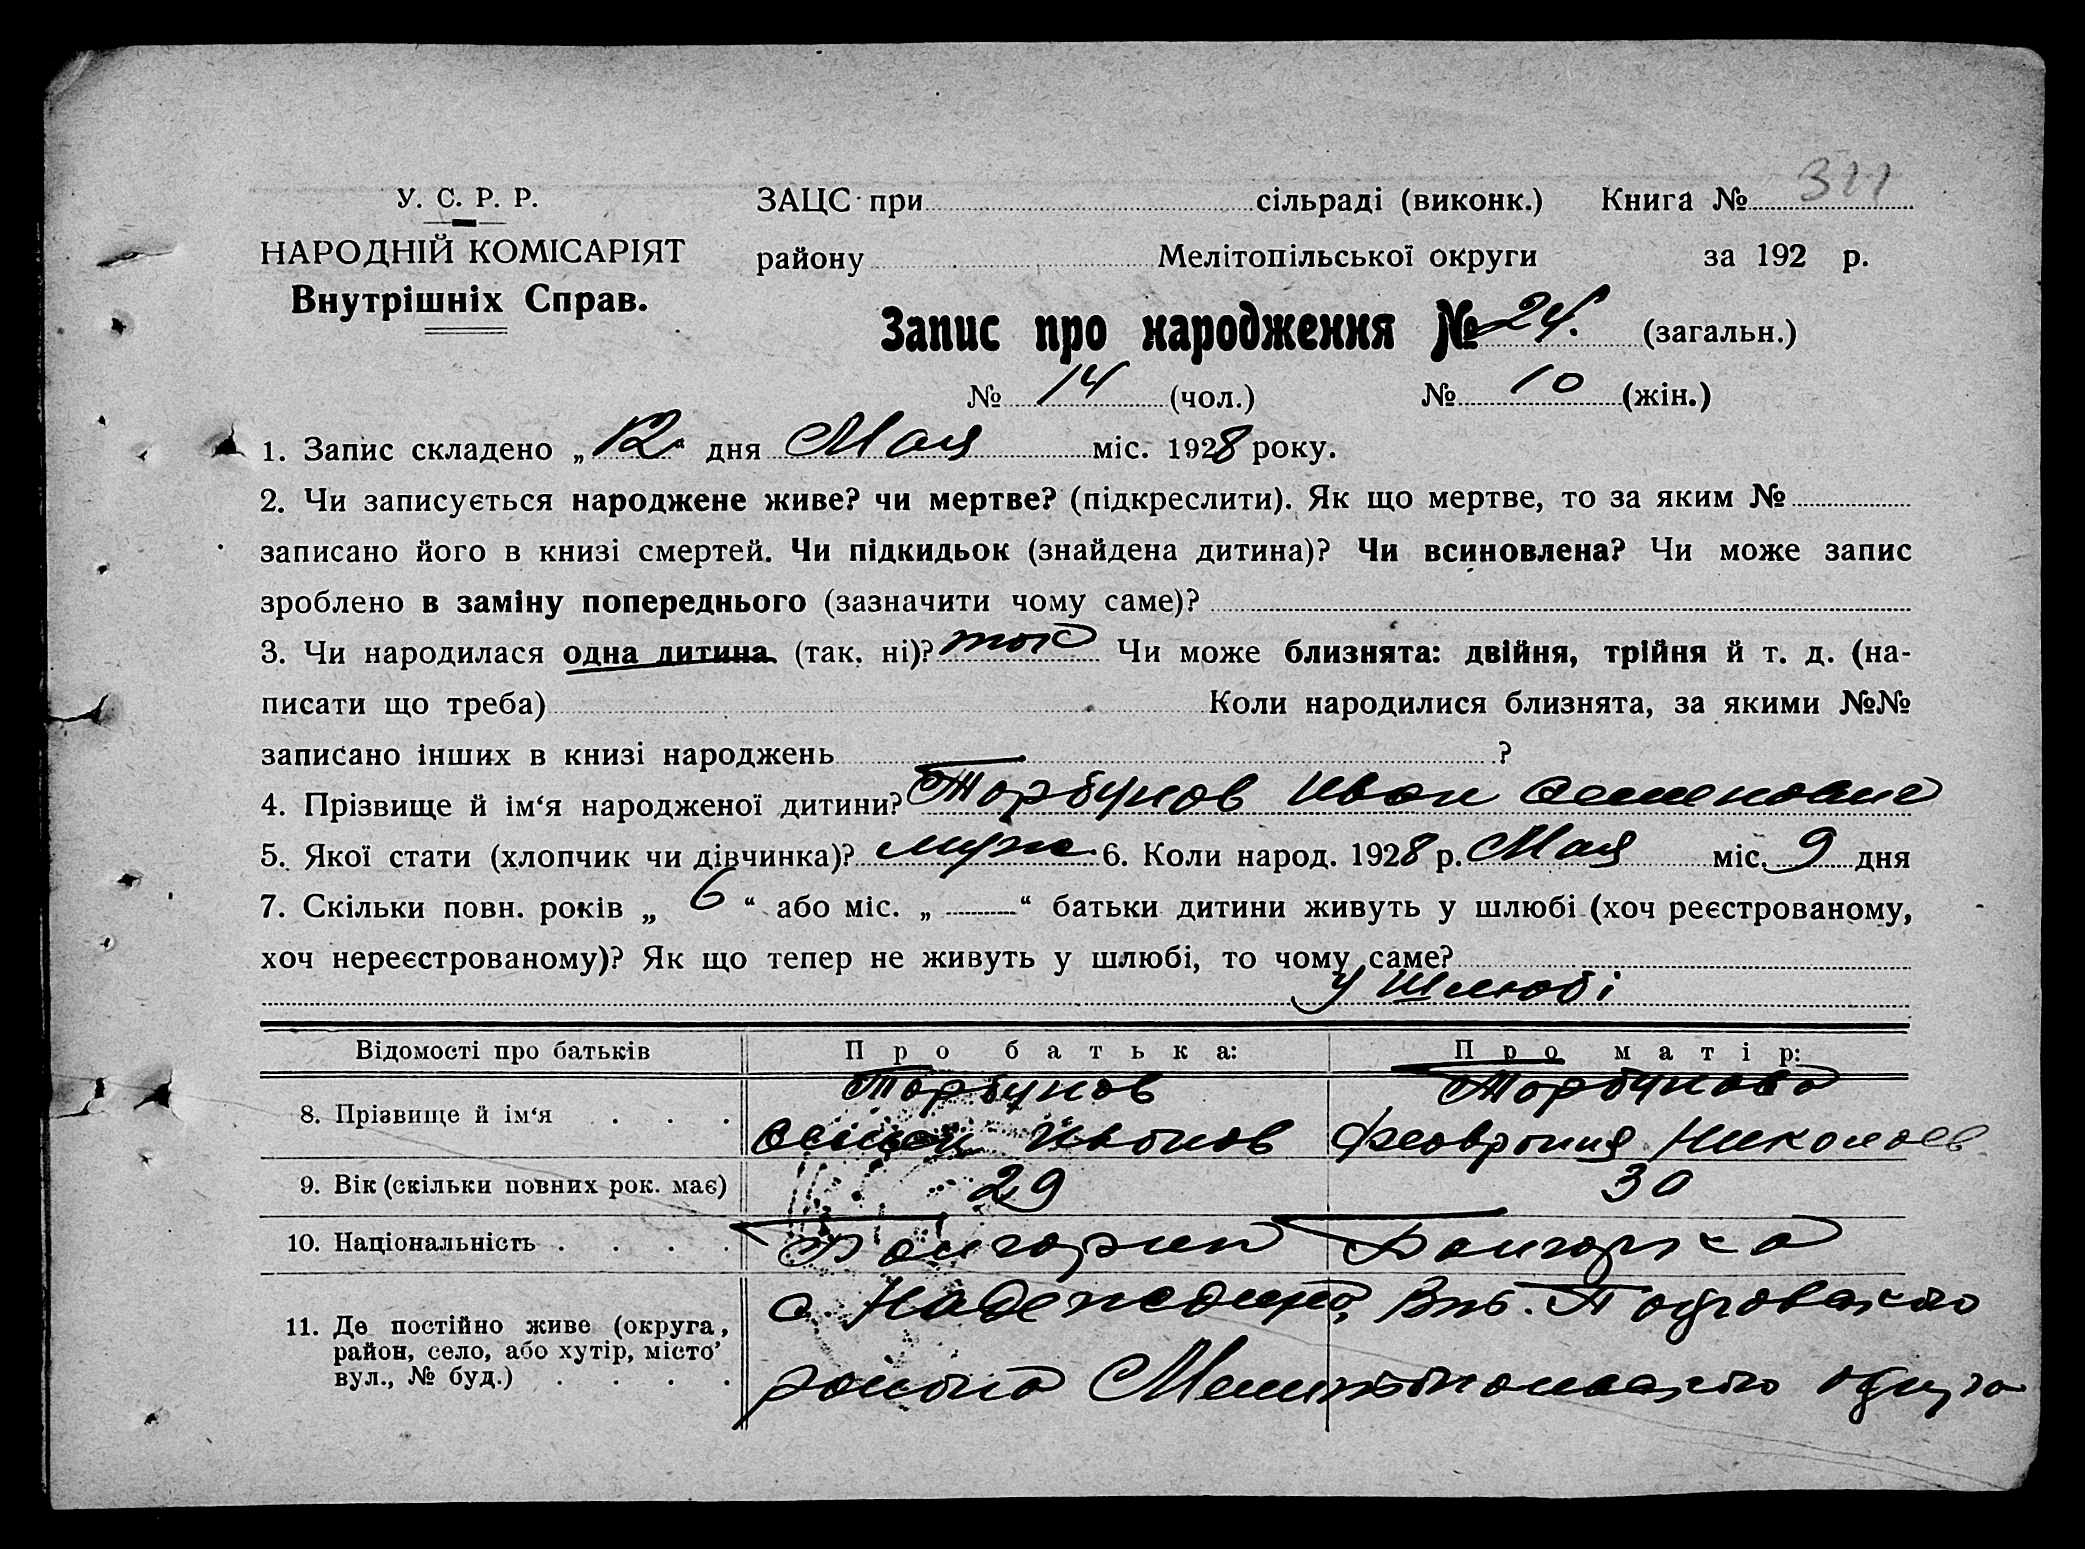 311
У. С. Р. Р.
НАРОДНІЙ КОМІСАРІЯТ
Внутрішніх Справ.
ЗАЦС при сільраді (виконк.) Книга №
району Мелітопільської округи за 192 р.
Запис про народження № 24. (загальн.)
№ 14 (чол.) № 10 (жін.)
1. Запис складено „12“ дня Мая міс. 1928 року.
2. Чи записується народжене живе? чи мертве? (підкреслити). Як що мертве, то за яким №
записано його в книзі смертей. Чи підкидьок (знайдена дитина)? Чи всиновлена? Чи може запис
зроблено в заміну попереднього (зазначити чому саме)?
3. Чи народилася одна дитина (так, ні)? так Чи може близнята: двійня, трійня й т. д. (на-
писати що треба) Коли народилися близнята, за якими №№
записано інших в книзі народжень ?
4. Прізвище й ім‘я народженої дитини? Торбунов Иван Семенович
5. Якої стати (хлопчик чи дівчинка)? муж 6. Коли народ. 1928 р. Мая міс. 9 дня
7. Скільки повн. років „ 6 “ або міс. „ — “ батьки дитини живуть у шлюбі (хоч реєстрованому,
хоч нереєстрованому)? Як що тепер не живуть у шлюбі, то чому саме?
у шлюбі
Відомості про батьків Про батька: Про матір:
8. Прізвище й ім‘я . . . Торбунов Торбунова
Семен Иванов Феврония Николаев
9. Вік (скільки повних рок. має) 29 30
10. Національність . . . . Болгарин Болгарка
11. Де постійно живе (округа,
район, село, або хутір, місто,
вул., № буд.) . . . .
с.
района Мелитопольского округа